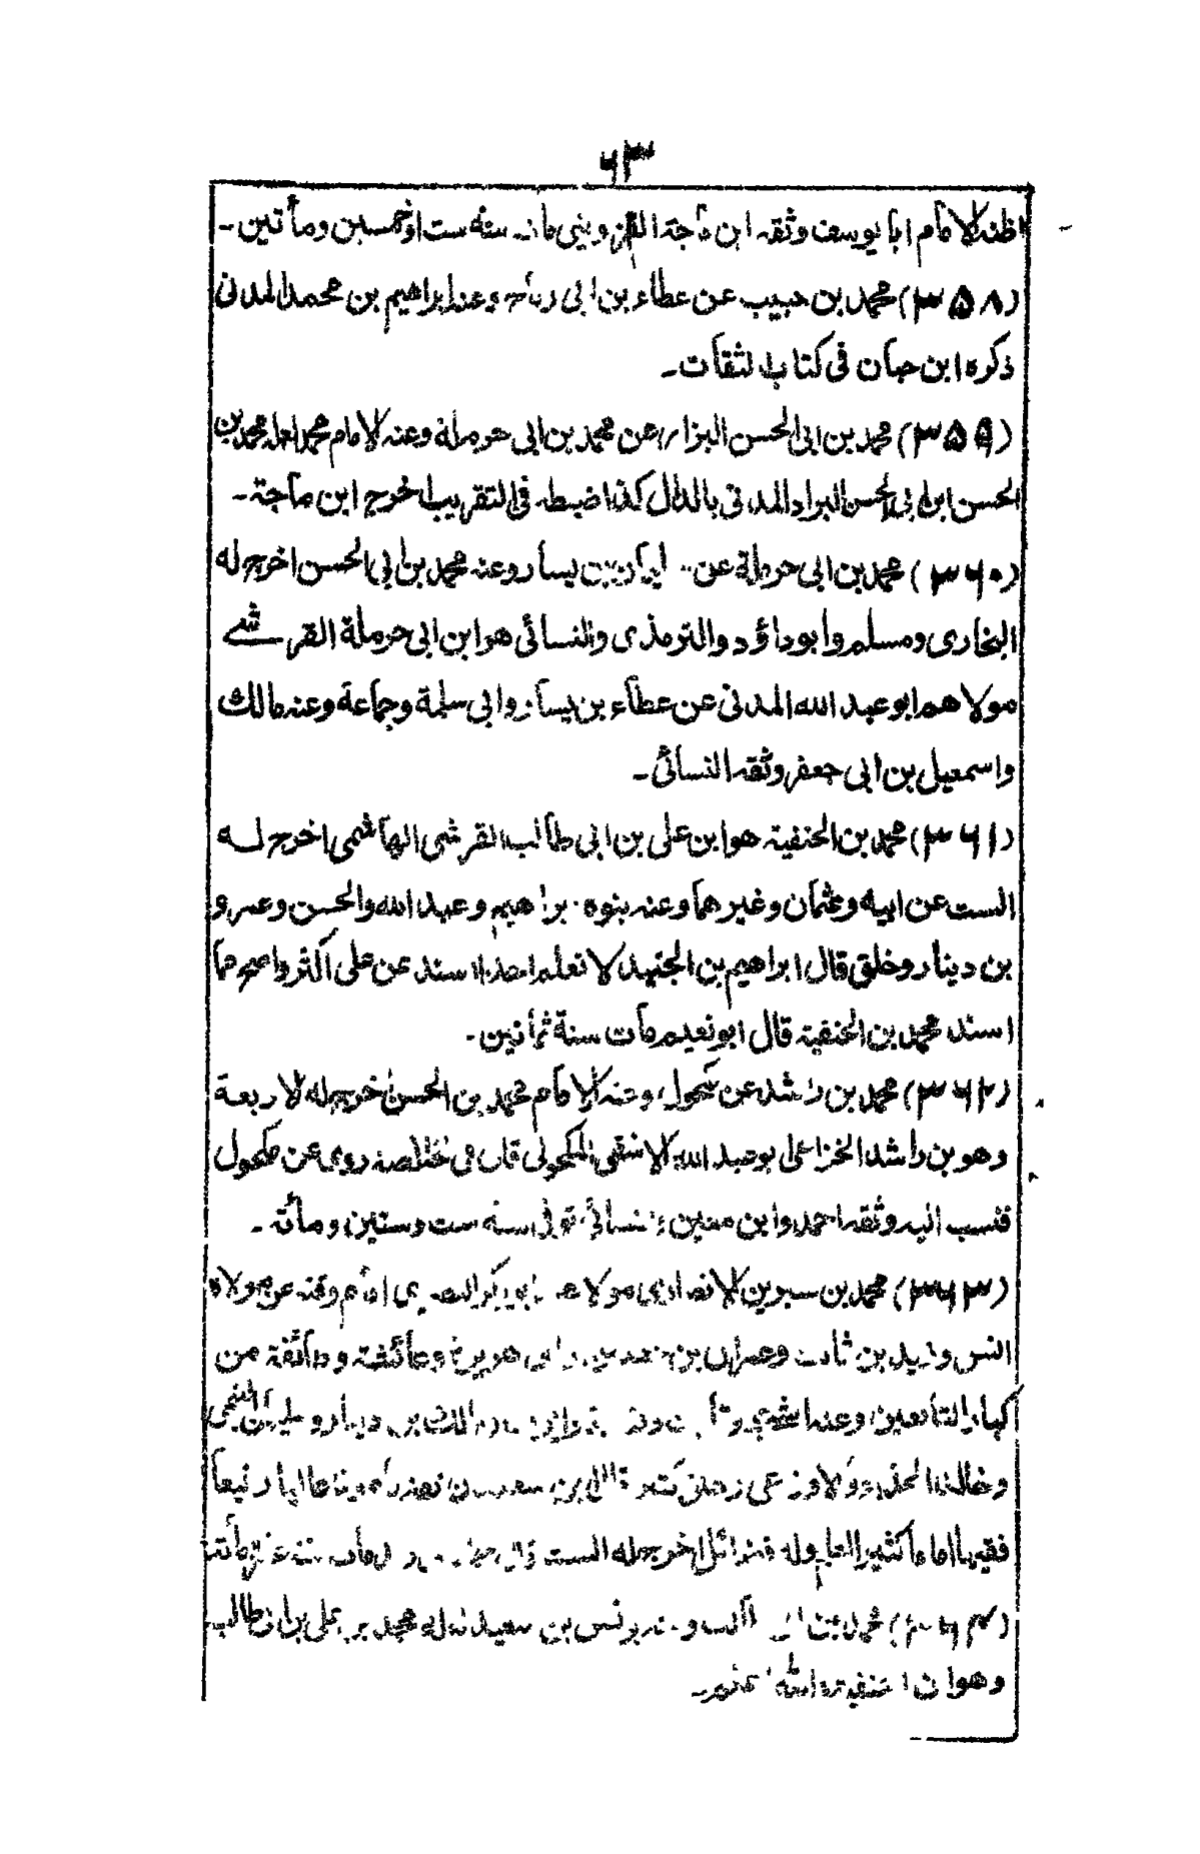 ٦٣
اظنه الامام ابا يوسف وثقه ابن ماجة القزويني مات سنة ست وخمسين ومأتين۔
(٣٥٨) محمد بن حبيب عن عطاء بن ابي رباح وعنه ابراهيم بن محمد المدنى
ذكره ابن حبان فى كتاب الثقات۔
(٣٥٩) محمد بن ابى الحسن البزار عن محمد بن ابى حرملة وعنه الامام محمد لعله محمد بن
الحسن ابن ابى الحسن البراد المدنى بالدال كذا ضبطه فى التقريب اخرج ابن ماجة۔
(٣٦٠) محمد بن ابى حرملة عن سليمان بن يسار وعنه محمد بن ابى الحسن اخرج له
البخارى ومسلم وابوداؤد والترمذى والنسائى هو ابن ابى حرملة القرشے
مولاهم ابو عبد الله المدنى عن عطاء بن يسار وابى سلمة وجماعة وعنه مالك
واسمعيل بن ابى جعفر وثقه النسائى۔
(٣٦١) محمد بن الحنفية هو ابن على بن ابى طالب القرشى الهاشمى اخرج له
الست عن ابيه وعثمان وغيرهما وعنه بنوه ابراهيم وعبد الله والحسن وعمرو
بن دينار وخلق قال ابراهيم بن الجنيد لا نعلم احدا اسند عن على اكثر واصح مما
اسند محمد بن الحنفية قال ابو نعيم مات سنة ثمانين۔
(٣٦٢) محمد بن راشد عن مكحول وعنه الامام محمد بن الحسن اخرج له الاربعة
وهو بن راشد الخزاعى ابو عبد الله الدمشقى المكحولى قال فى الخلاصة روى عن مكحول
فنسب اليه وثقه احمد وابن معين والنسائى توفى سنة ست وستين ومأته۔
(٣٦٣) محمد بن سيرين الانصارى مولاهم ابو بكر البصرى امام وقته عن مولاه
انس وزيد بن ثابت وعمران بن حصين وابى هريرة وعائشة وطائفة من
كبار التابعين وعنه الشعبى وثابت وقتادة وايوب ومالك بن دينار وسليمان التيمى
وخالد الحذاء والاوزاعى وخلق كثير قال ابن سعد كان ثقة مأمونا عاليا رفيعا
فقيها اماما كثير العلم وله فضائل اخرج له الست مات سنة عشر ومأئة
(٣٦٤) محمد بن يونس بن سعيد محمد بن على بن ابى طالب
وهو ابن الحنفية